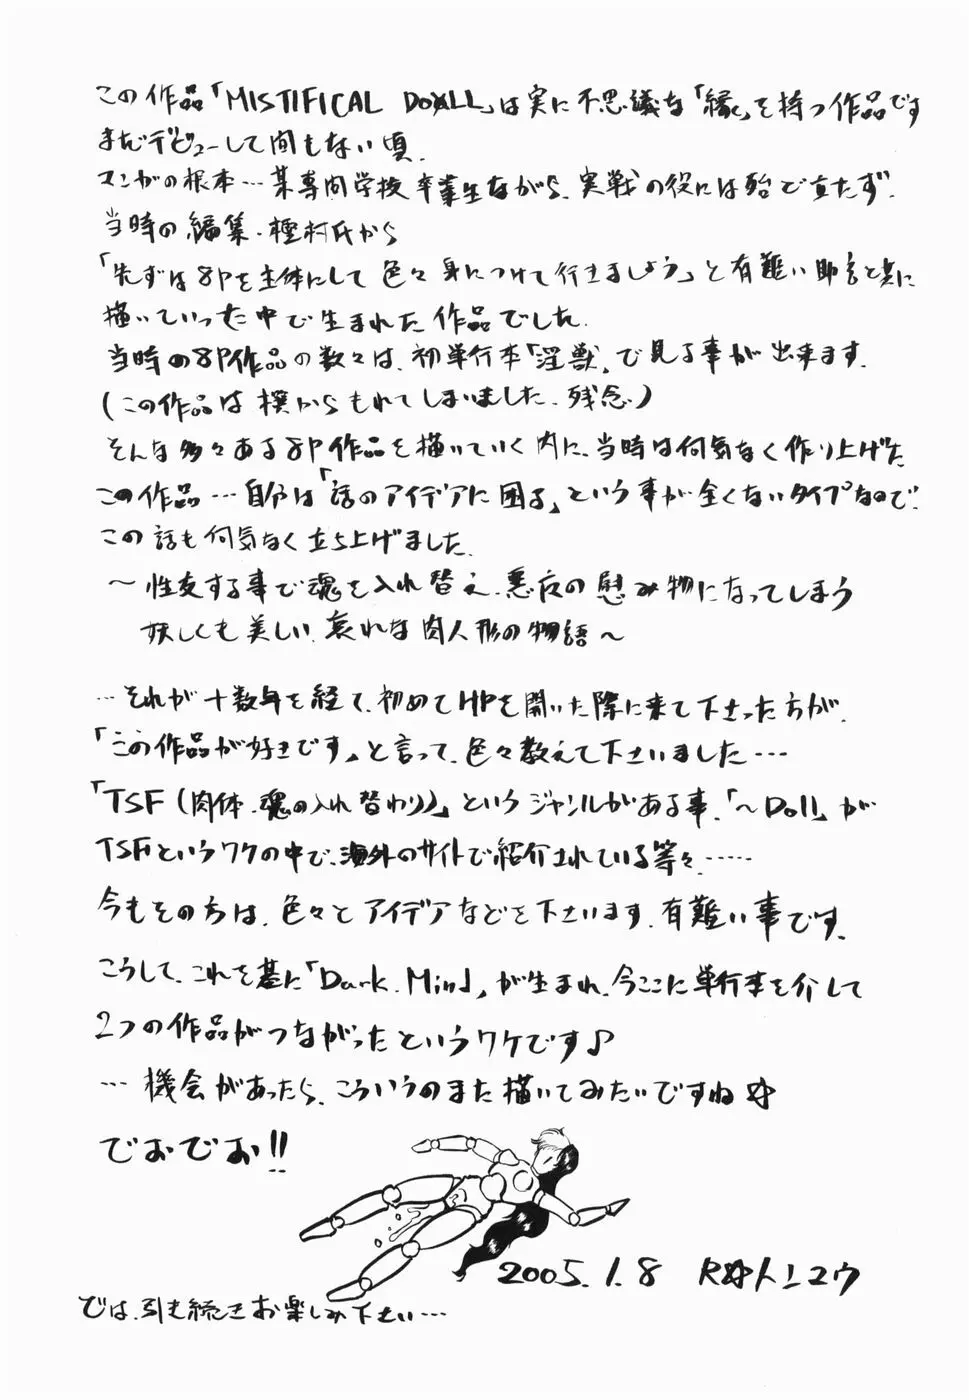 この作品「MISTIFICAL DOLL」は実に不思議な「縁」を持つ作品です
まだデビューして間もない頃、
マンガの根本…某専門学校卒業生ながら、実戦の役には殆ど立たず、
当時の編集・種村氏から
「先ずは8Pを主体にして色々身につけて行きましょう」と有難い助言と共に
描いていった中で生まれた作品でした。
当時の8P作品の数々は、初単行本「淫獣」で見る事が出来ます。
(この作品は撰からもれてしまいました、残念)
そんな多々ある8P作品を描いていく内に、当時は何気なく作り上げた
この作品…自分は「話のアイデアに困る」という事が全くないタイプなので、
この話も何気なく立ち上げました。
〜性交する事で魂を入れ替え、悪夜の慰み物になってしまう
妖しくも美しい、哀れな肉人形の物語〜
…それが十数年を経て、初めてHPを開いた際に来て下さった方が、
「この作品が好きです」と言って、色々教えて下さいました…
「TSF(肉体・魂の入れ替わり)」というジャンルがある事、「〜Doll」が
TSFというワクの中で、海外のサイトで紹介されている等々……
今もその方は、色々とアイデアなどを下さいます。有難い事です。
こうして、これを基に「Dark Mind」が生まれ、今ここに単行本を介して
2つの作品がつながったというワケです♪
…機会があったら、こういうのまた描いてみたいですね☆
でおでお!!
2005.1.8
では、引き続きお楽しみ下さい…